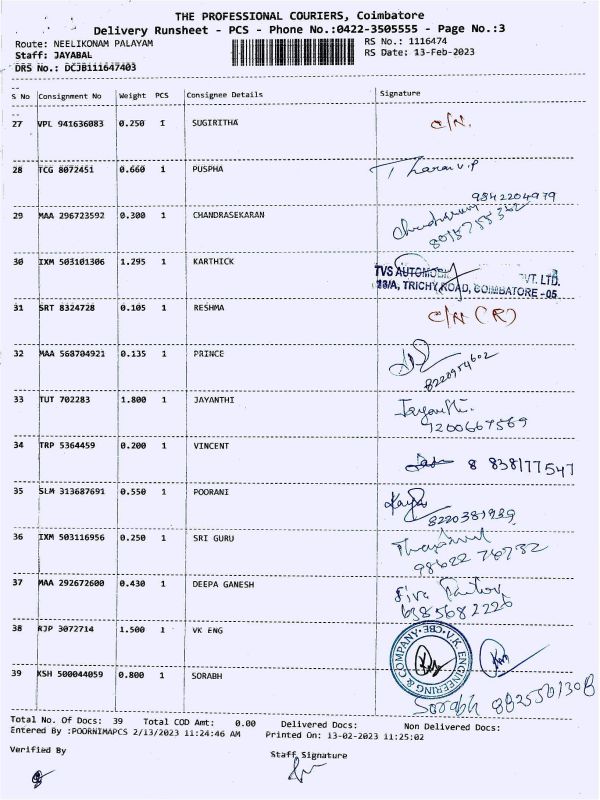 THE PROFESSIONAL COURIERS, Coimbatore
Delivery Runsheet - PCS - Phone No.:0422-3505555 - Page No.:3
Route: NEELIKONAM PALAYAM RS No.: 1116474
Staff: JAYABAL RS Date: 13-Feb-2023
DRS No.: DCJB111647403
S No Consignment No Weight PCS Consignee Details Signature
27 VPL 941636083 0.250 1 SUGIRITHA C/N.
28 TCG 8072451 0.660 1 PUSPHA
9842204979
29 MAA 296723592 0.300 1 CHANDRASEKARAN
30 IXM 503101306 1.295 1 KARTHICK
TVS AUTOMOBI VT. LTD.
18/A, TRICHY ROAD, COIMBATORE -05
31 SRT 8324728 0.105 1 RESHMA C/N (R)
32 MAA 568704921 0.135 1 PRINCE
8220954602
33 TUT 702283 1.800 1 JAYANTHI Jayanthi.
7200667569
34 TRP 5364459 0.200 1 VINCENT 8 838177547
35 SLM 313687691 0.550 1 POORANI
8220381939
36 IXM 503116956 0.250 1 SRI GURU
98622 76732
37 MAA 292672600 0.430 1 DEEPA GANESH
6385682226
38 RJP 3072714 1.500 1 VK ENG
V.K. ENGINEERING & COMPANY CBE
39 KSH 500044059 0.800 1 SORABH
Sorabh
Total No. Of Docs: 39 Total COD Amt: 0.00 Delivered Docs: Non Delivered Docs:
Entered By :POORNIMAPCS 2/13/2023 11:24:46 AM Printed On: 13-02-2023 11:25:02
Verified By Staff Signature